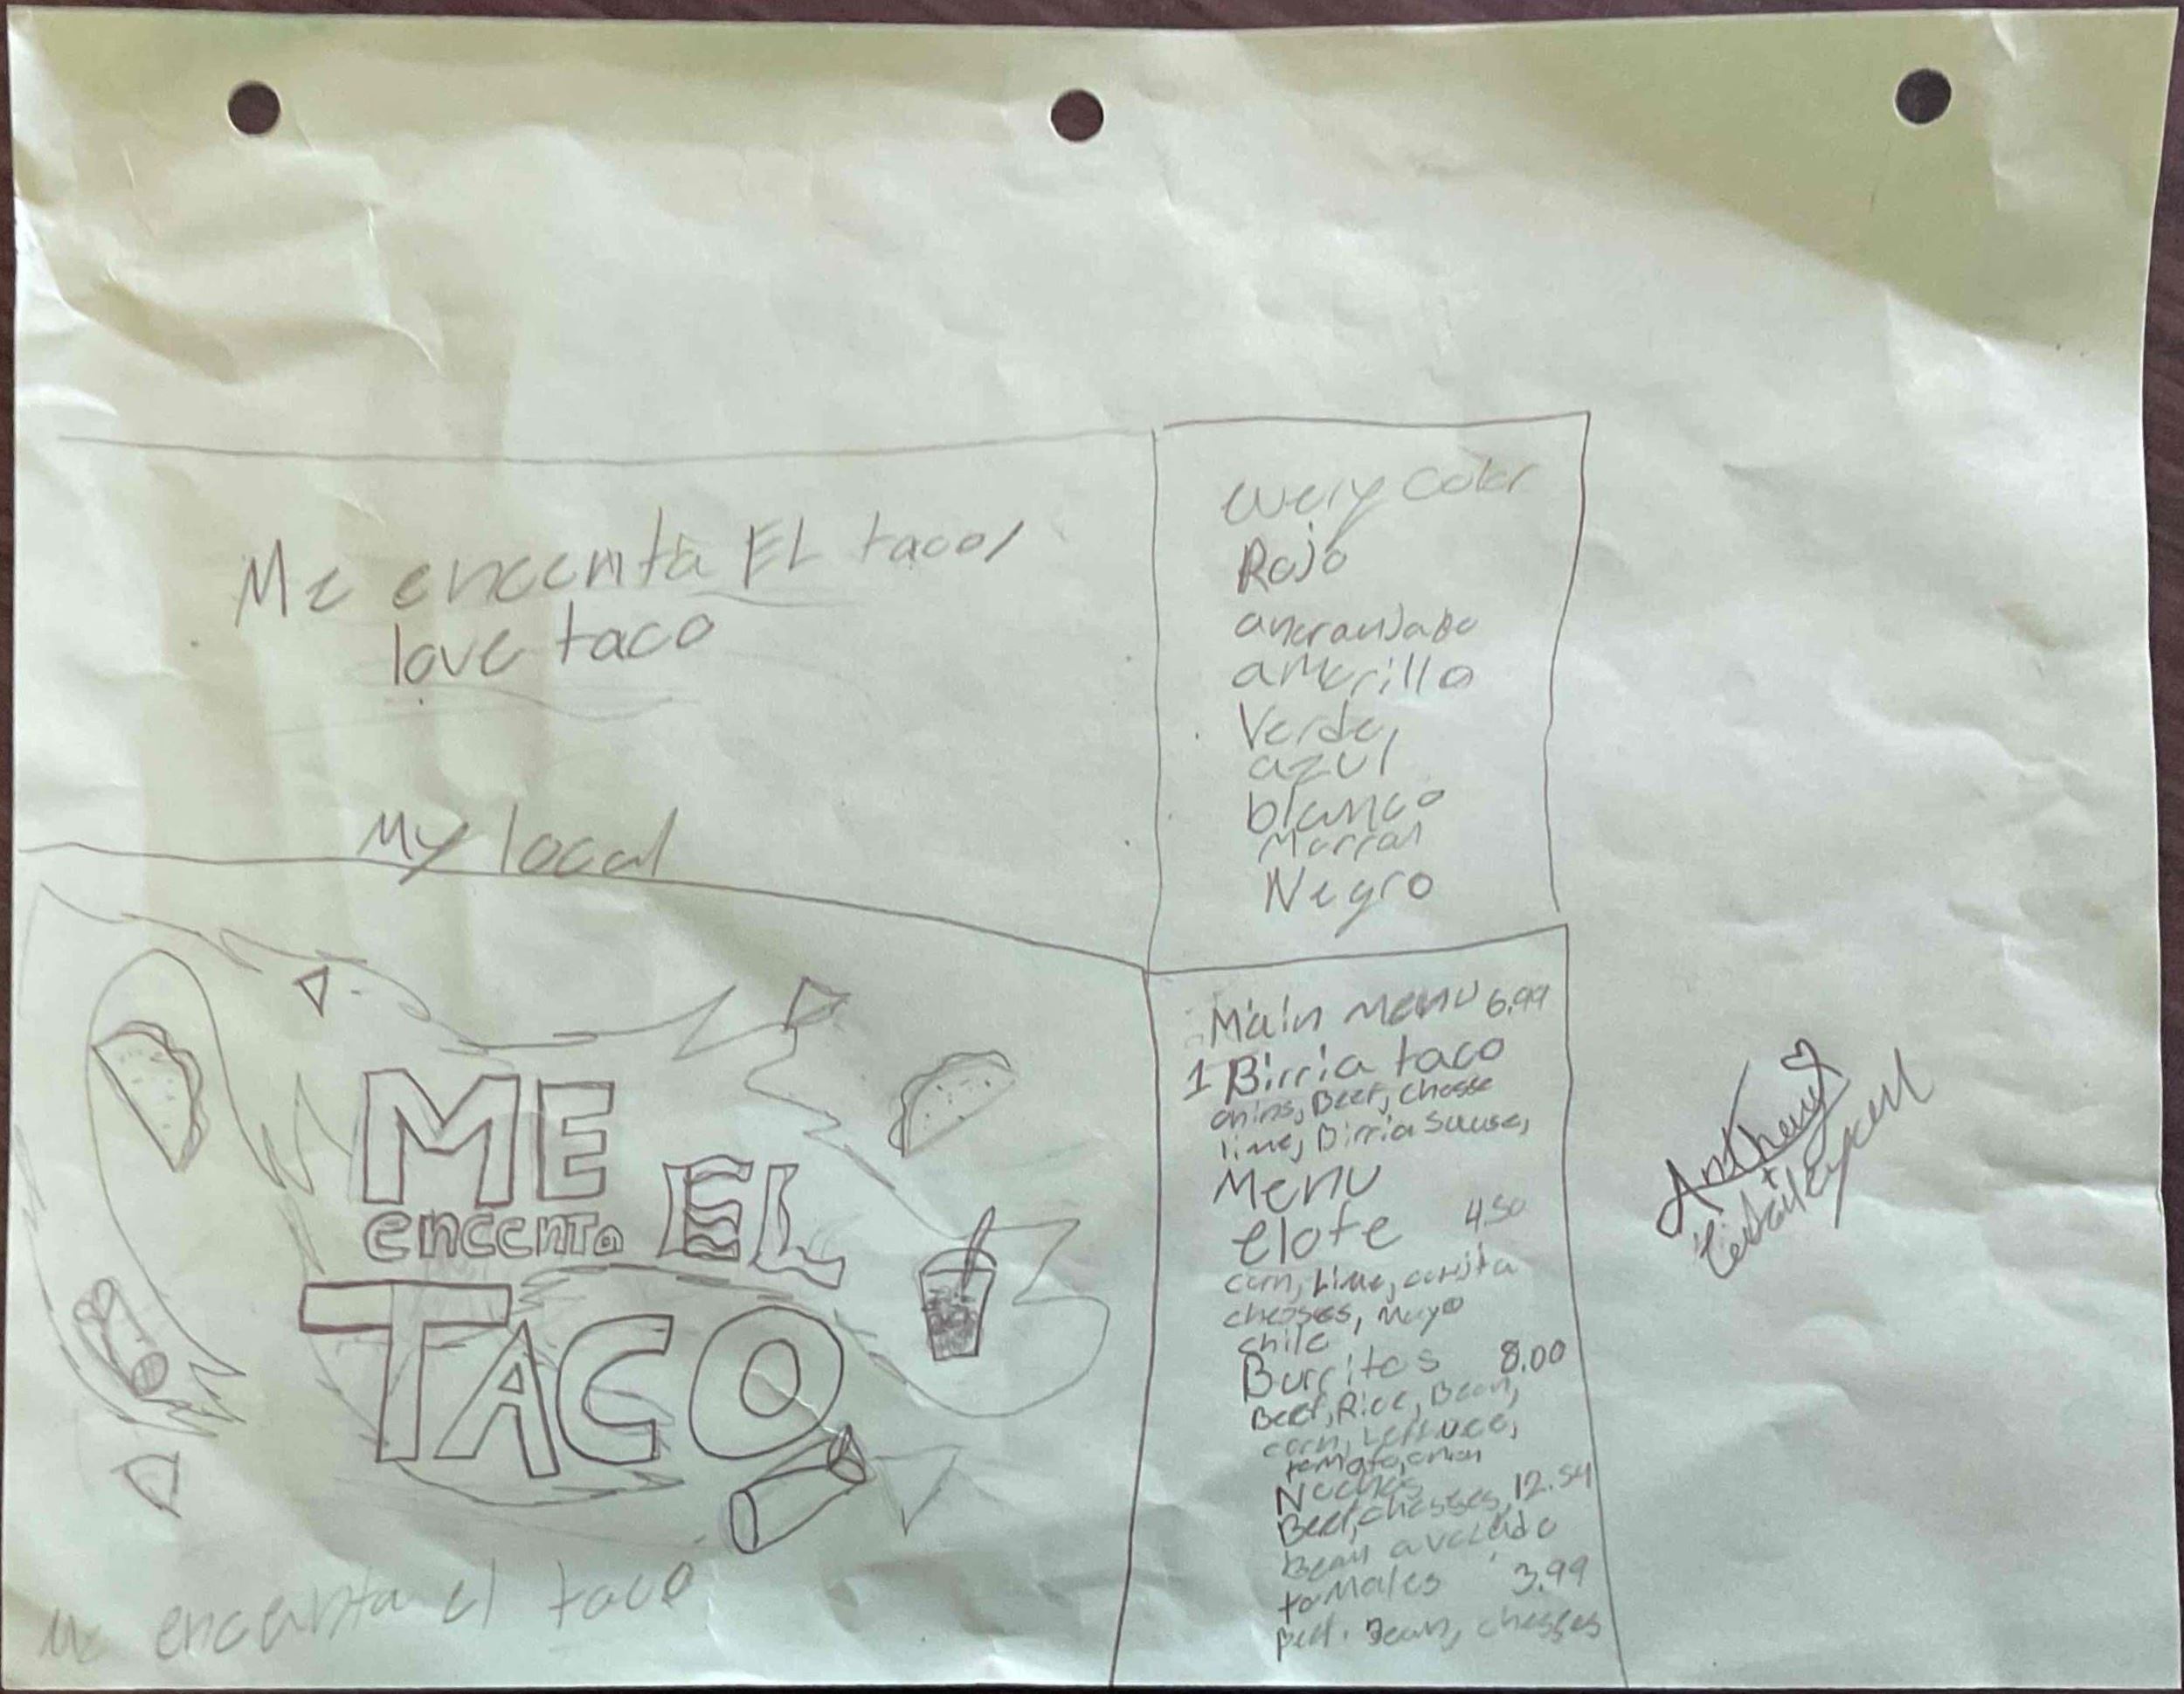 Me encenta EL taco/
love taco
My local
every color
Rojo
anaranjado
amarillo
Verde,
azul
blanco
Marron
Negro
ME
encenta EL
TACO
Me encanta el taco
Main menu 6.99
1 Birria taco
onins, Beef, chesse
lime, Birria sause,
Menu
elote 4.50
corn, Lime,
chesses, mayo
chile
Burritos 8.00
Beef, Rice, Bean,
corn, Lettuce,
tomato, onion
Nachos
Beef, chesses, 12.54
Bean avocado
tamales 3.99
Beef. Bean, chesses
Anthony
+